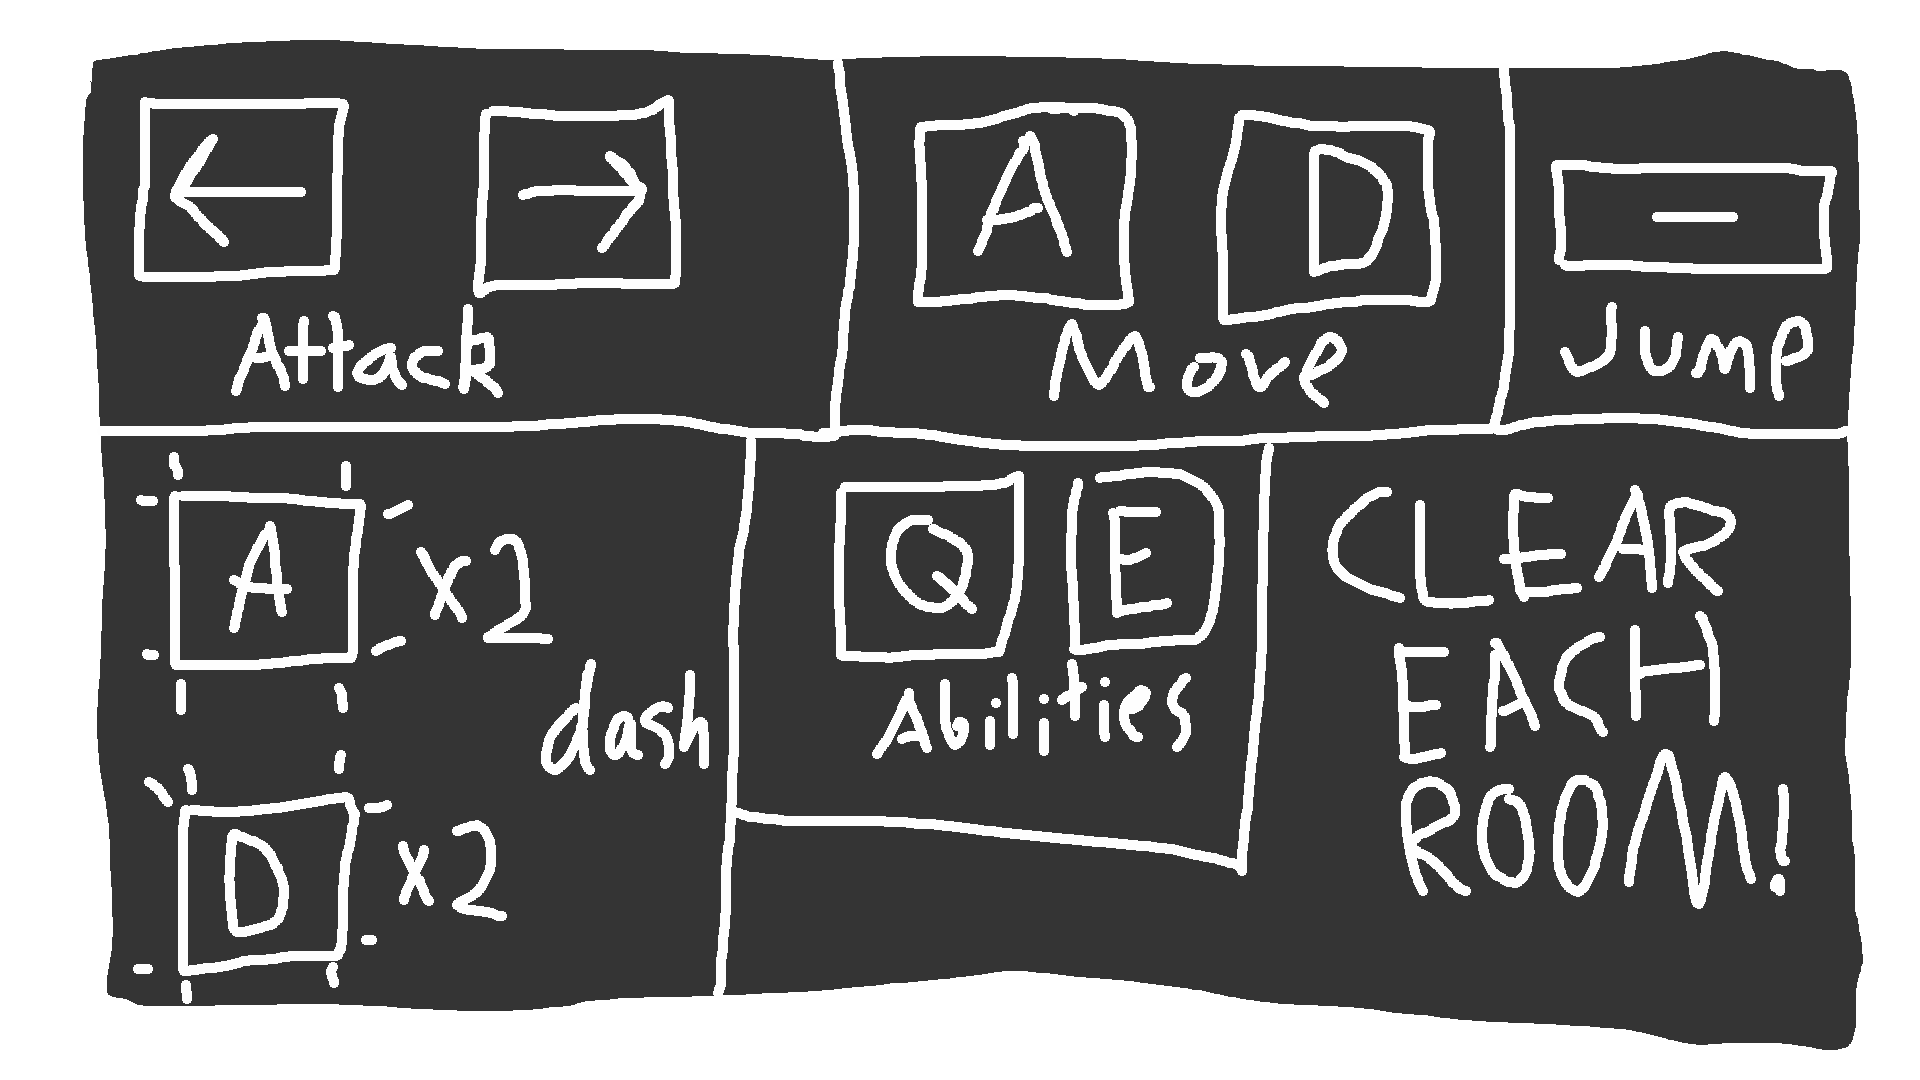 ← →
Attack
A D
Move
Jump
A x2
dash
D x2
Q E
Abilities
CLEAR
EACH
ROOM!